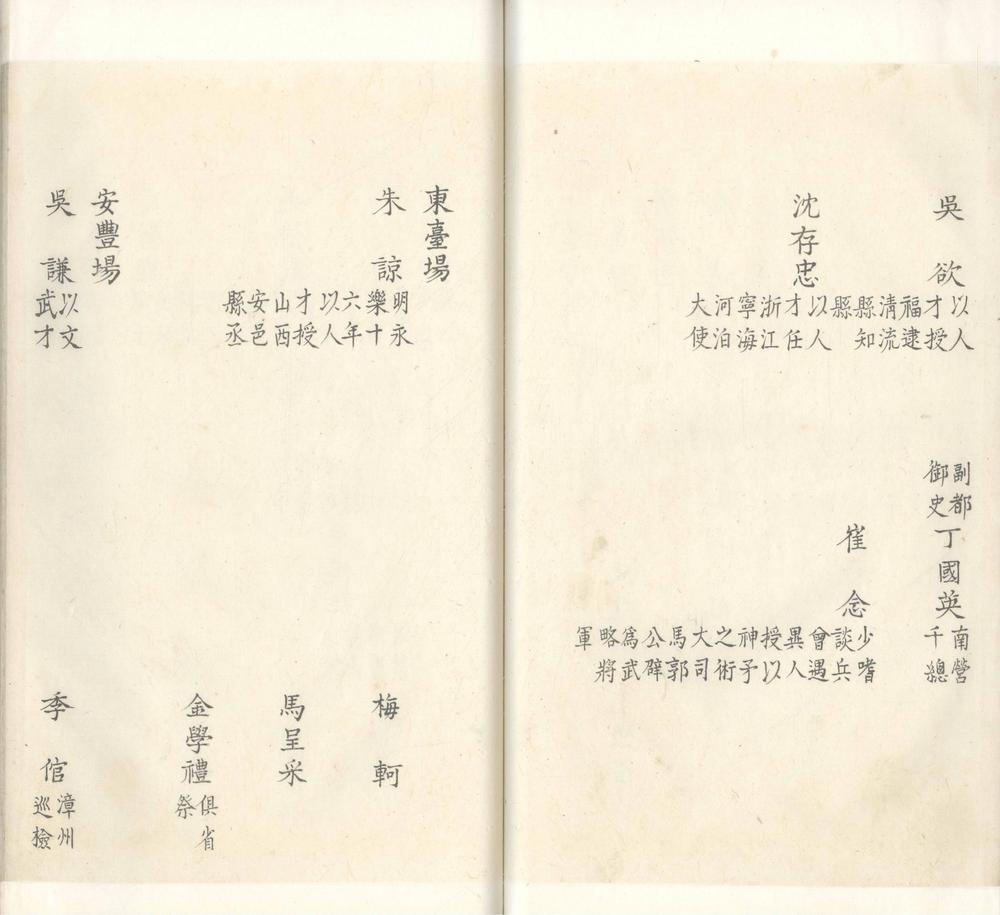 吳欲 以人才授福逮清流縣知縣
副都御史 丁國英 南營千總
崔念 少嗜談兵會遇異人授以神予之術大司馬郭公辟爲武略將軍
沈存忠 以人才任浙江寧海河泊大使
東臺場
朱諒 明永樂十六年以人才授山西安邑縣丞
梅軻
馬呈采
金學禮 俱省祭
安豐場
吳謙 以文武才
季倌 漳州巡檢